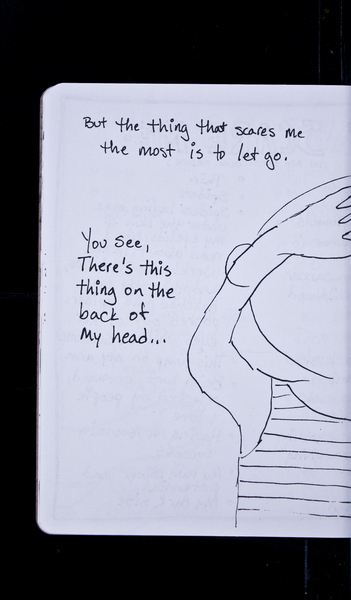 But the thing that scares me
the most is to let go.
You see,
There's this
thing on the
back of
My head...